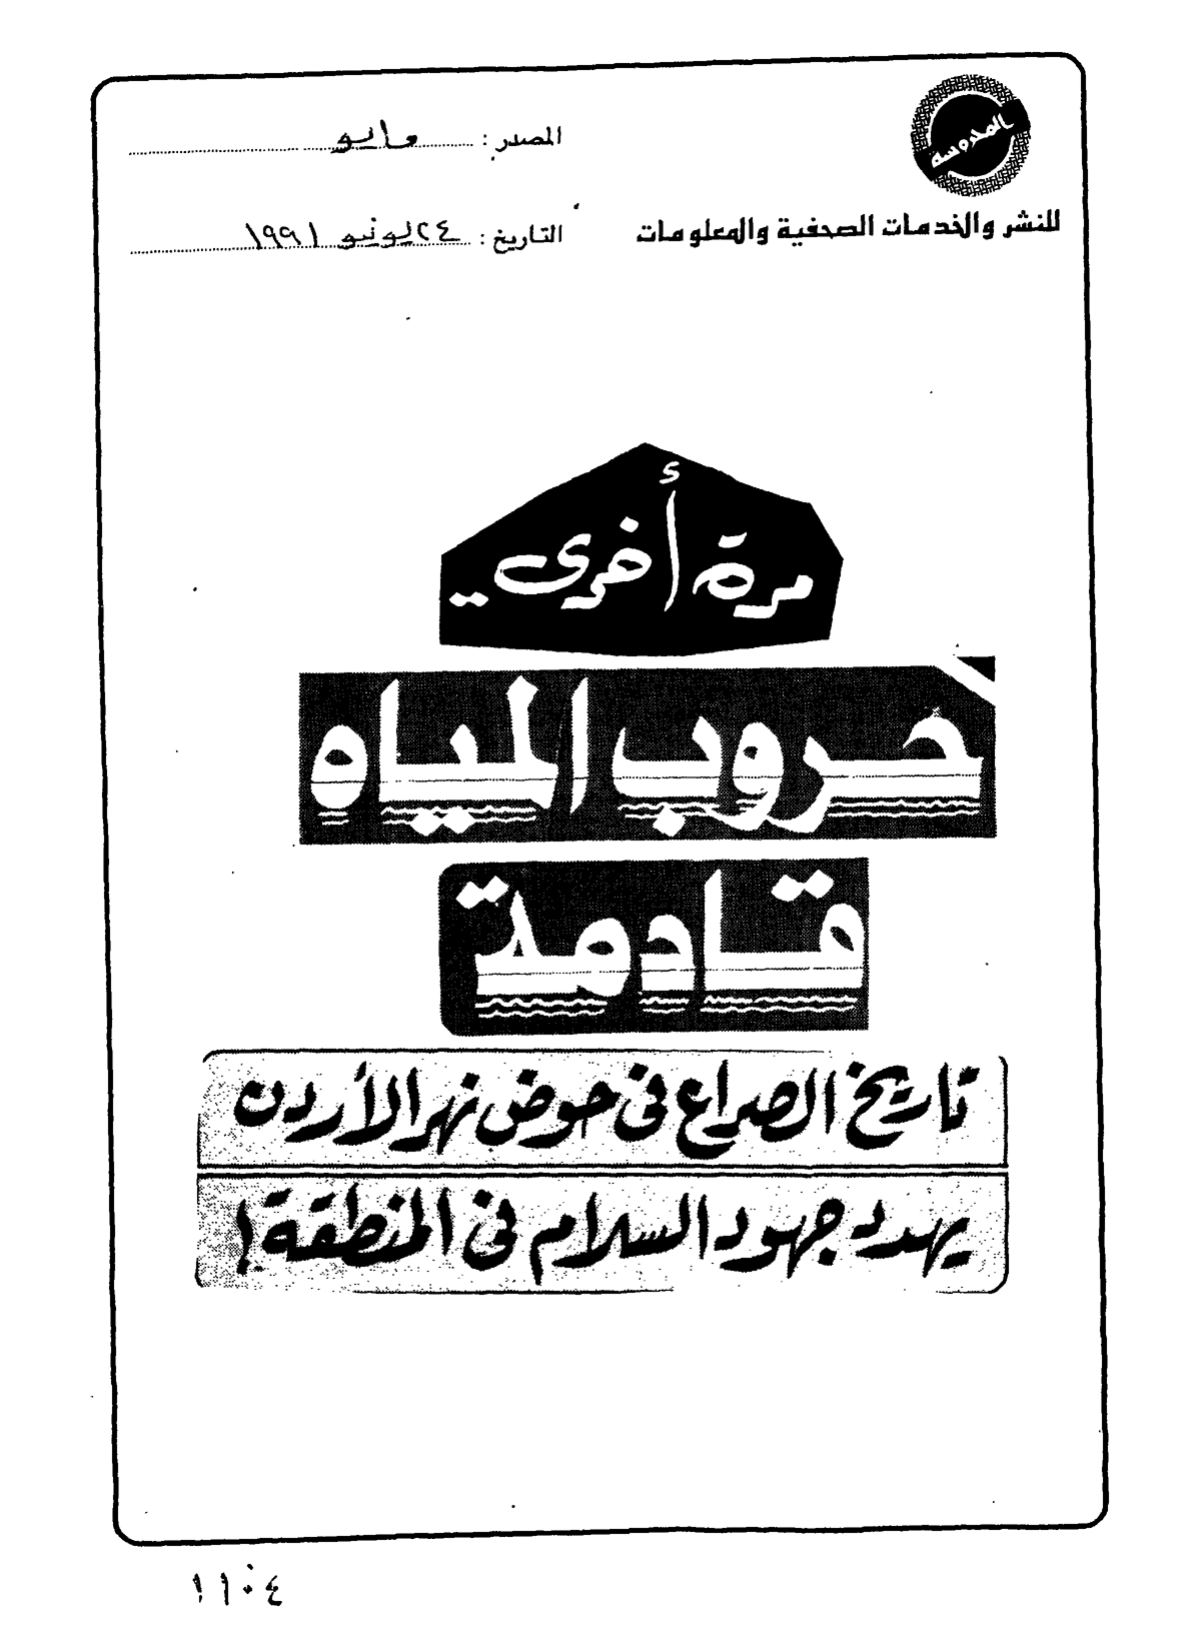 المحروسة
للنشر والخدمات الصحفية والمعلومات
المصدر : مايو
التاريخ : ٢٤ يونيو ١٩٩١
مرة أخرى ..
حروب المياه
قادمة
تاريخ الصراع فى حوض نهر الأردن
يهدد جهود السلام فى المنطقة !